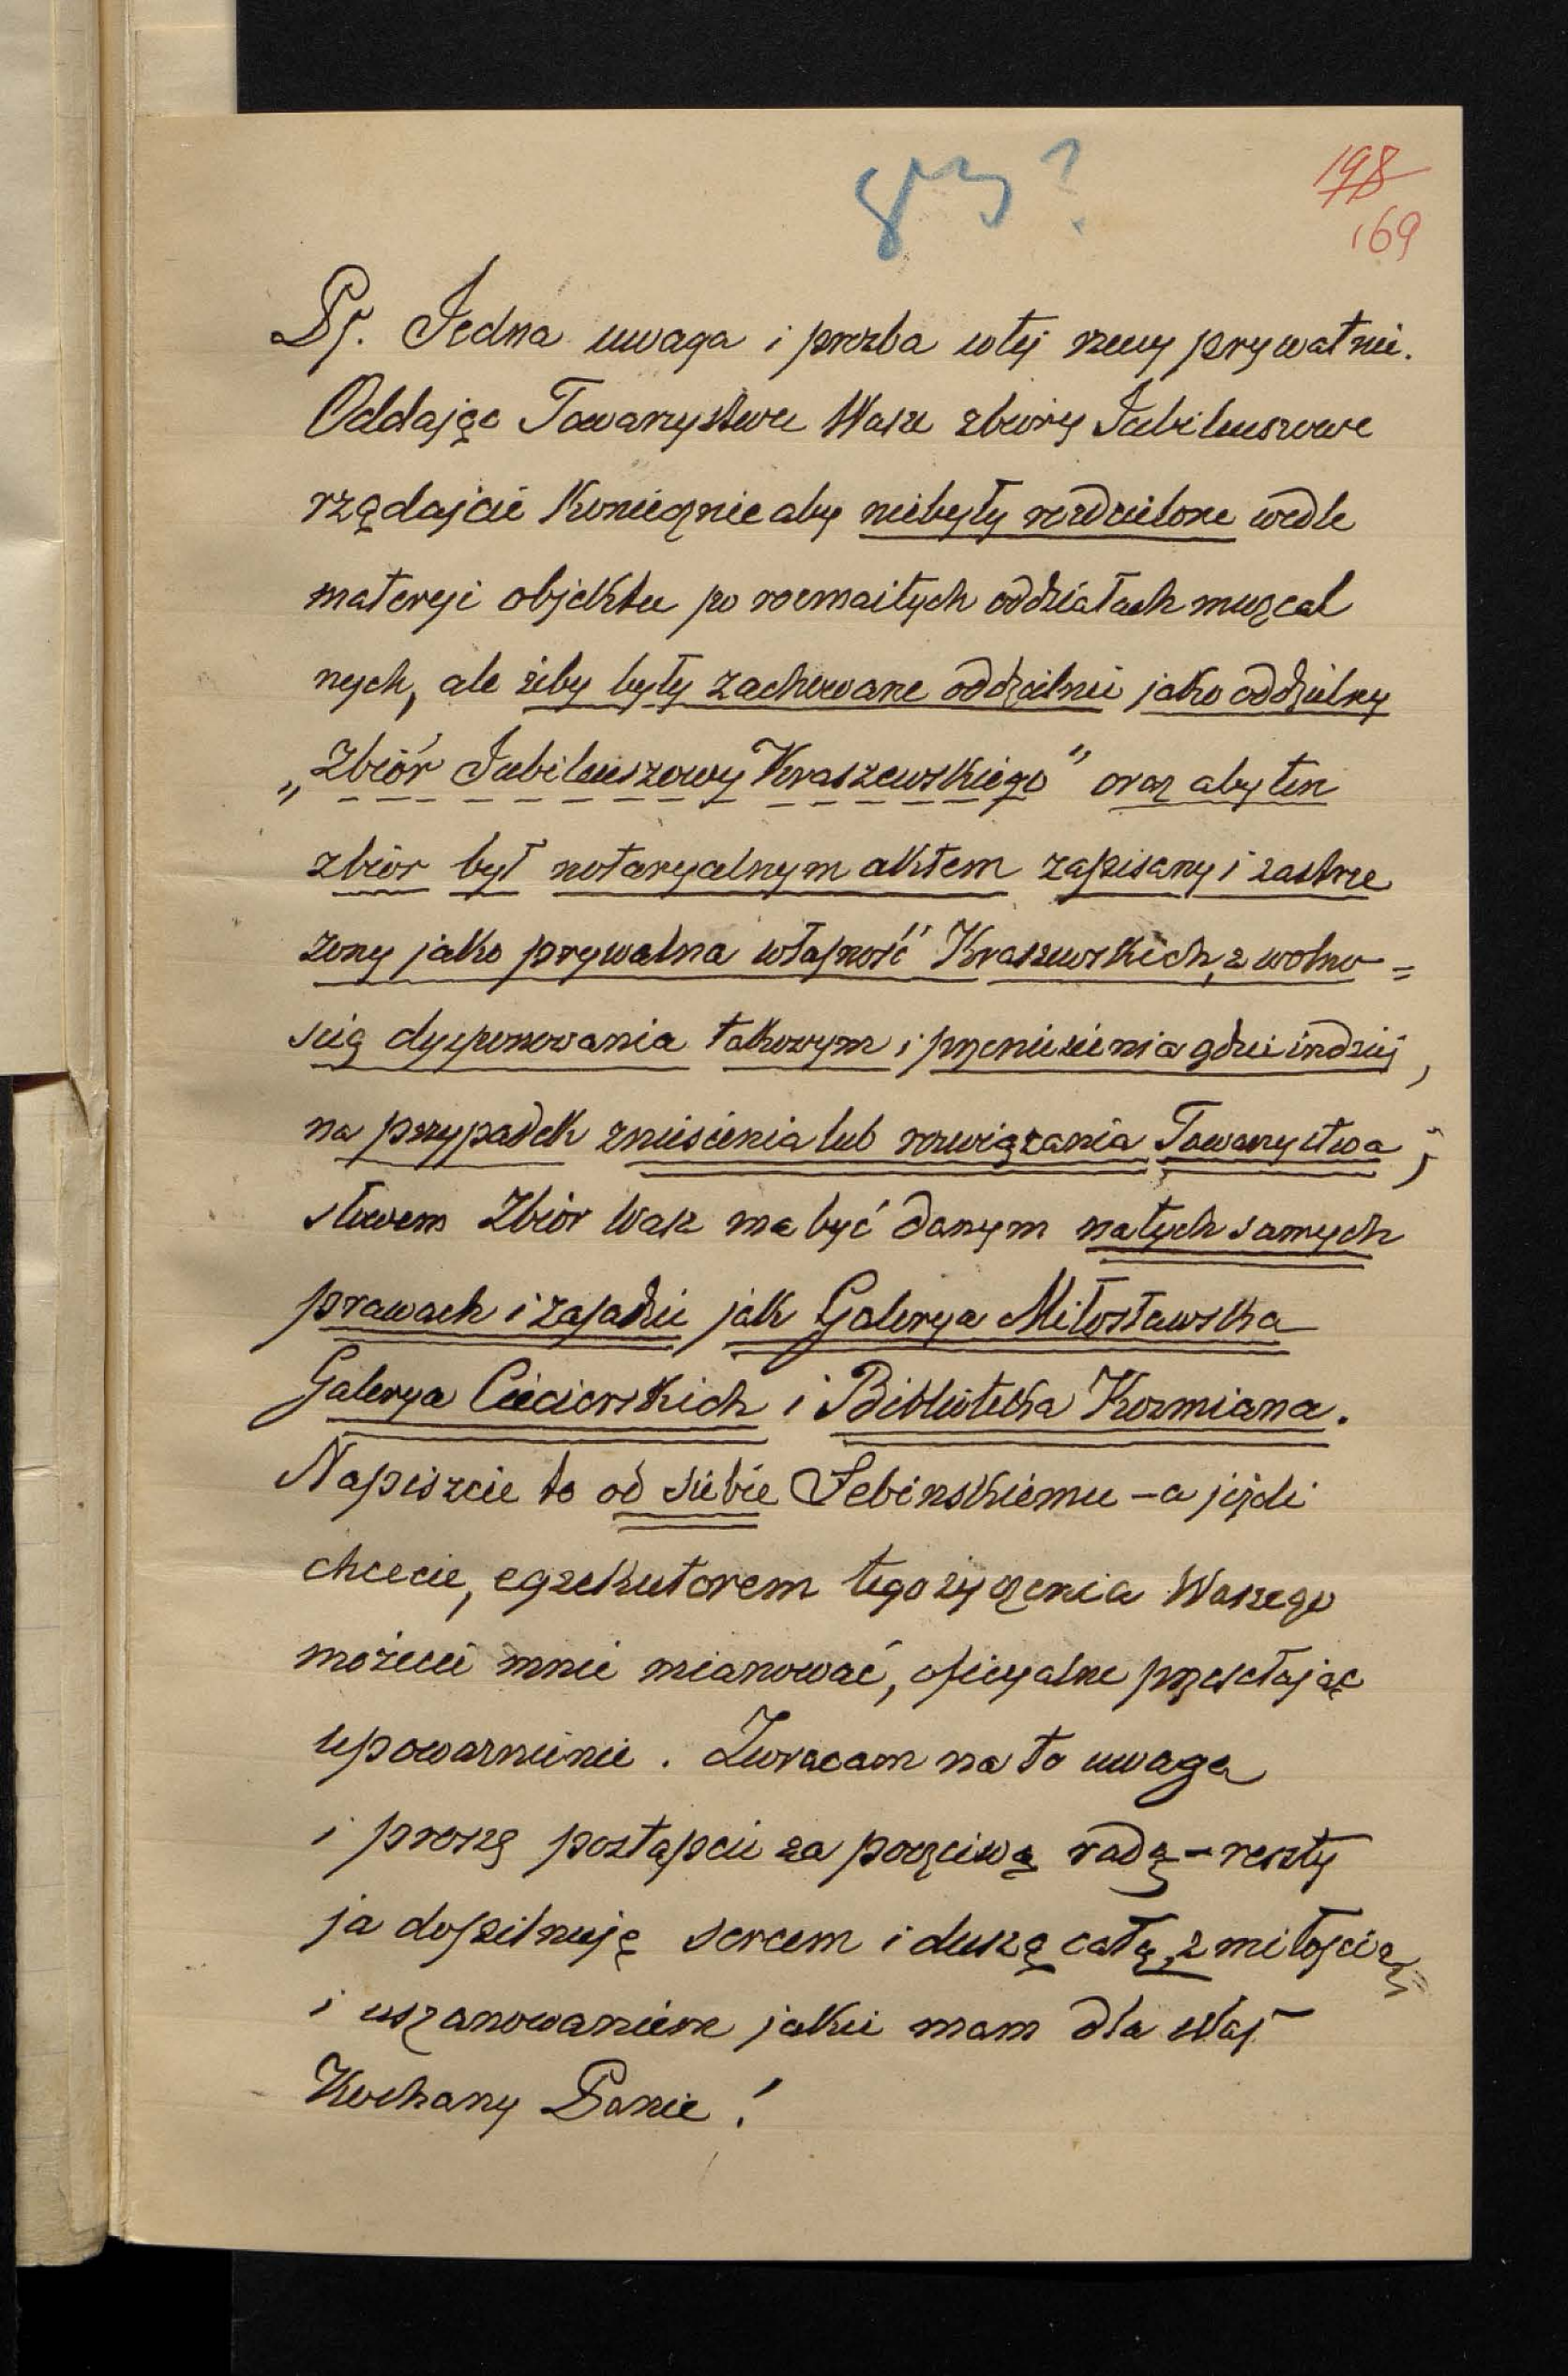 198
169
Ps. Jedna uwaga i prozba w tej rzeczy prywatnie.
Oddając Towarzystwu Wasze zbiory Jubileuszowe
rządajcie koniecznie aby niebyły rozdzielone wedle
materyi objektu po rozmaitych oddziałach muzeal
nych, ale żeby były zachowane oddzielnie jako oddzielny
„Zbiór Jubileuszowy Kraszewskiego" oraz aby ten
zbiór był notaryalnym aktem zapisany i zastrze
żony jako prywatna własność Kraszewskich, z wolno=
ścią dysponowania takowym i przeniesienia gdzieindziej,
na przypadek zniesienia lub rozwiązania Towarzystwa;
słowem Zbiór Wasz ma być danym na tych samych
prawach i zasadzie jak Galerya Miłosławska
Galerya Cieciorskich i Biblioteka Kozmiana.
Napiszcie to od siebie Febinskiemu – a jeżeli
chcecie, egzekutorem tego życzenia Waszego
możecie mnie mianować, oficyalne przesełając
upoważnienie. Zwracam na to uwagę
i proszę postąpcie za poczciwą radą – reszty
ja dopilnuję sercem i duszą całą, z miłością
i uszanowaniem jakie mam dla Was
Kochany Panie!